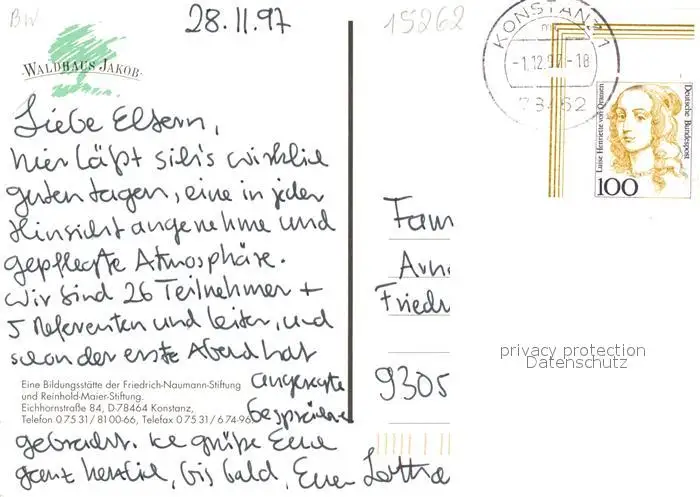 BW
28.11.97
15262
WALDHAUS JAKOB
Liebe Eltern,
hier läßt sich's wirklich
guten tagen, eine in jeder
Hinsicht angenehme und
gepflegte Atmosphäre.
Wir sind 26 Teilnehmer +
5 Referenten und Leiter, und
schon der erste Abend hat
angeregte
Gespräche
gebracht. Ich grüße Euch
ganz herzlich, bis bald, Euer Lotha
Eine Bildungsstätte der Friedrich-Naumann-Stiftung
und Reinhold-Maier-Stiftung.
Eichhornstraße 84, D-78464 Konstanz,
Telefon 0 75 31/ 8100-66, Telefax 0 75 31/ 6 74-96
KONSTANZ 1
-1.12.97-18
78462
Luise Henriette von Oranien
Deutsche Bundespost
100
Fam
Arn
Friedr
9305
privacy protection
Datenschutz